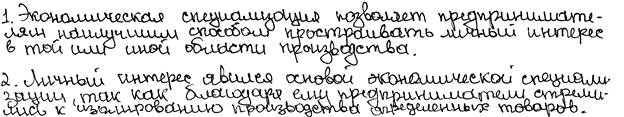 1. Экономическая специализация позволяет предпринимате-
лям наилучшим способом простраивать личный интерес
в той или иной области производства.
2. Личный интерес явился основой экономической специали-
зации, так как благодаря ему предприниматели стреми-
лись к изолированию производства определенных товаров.